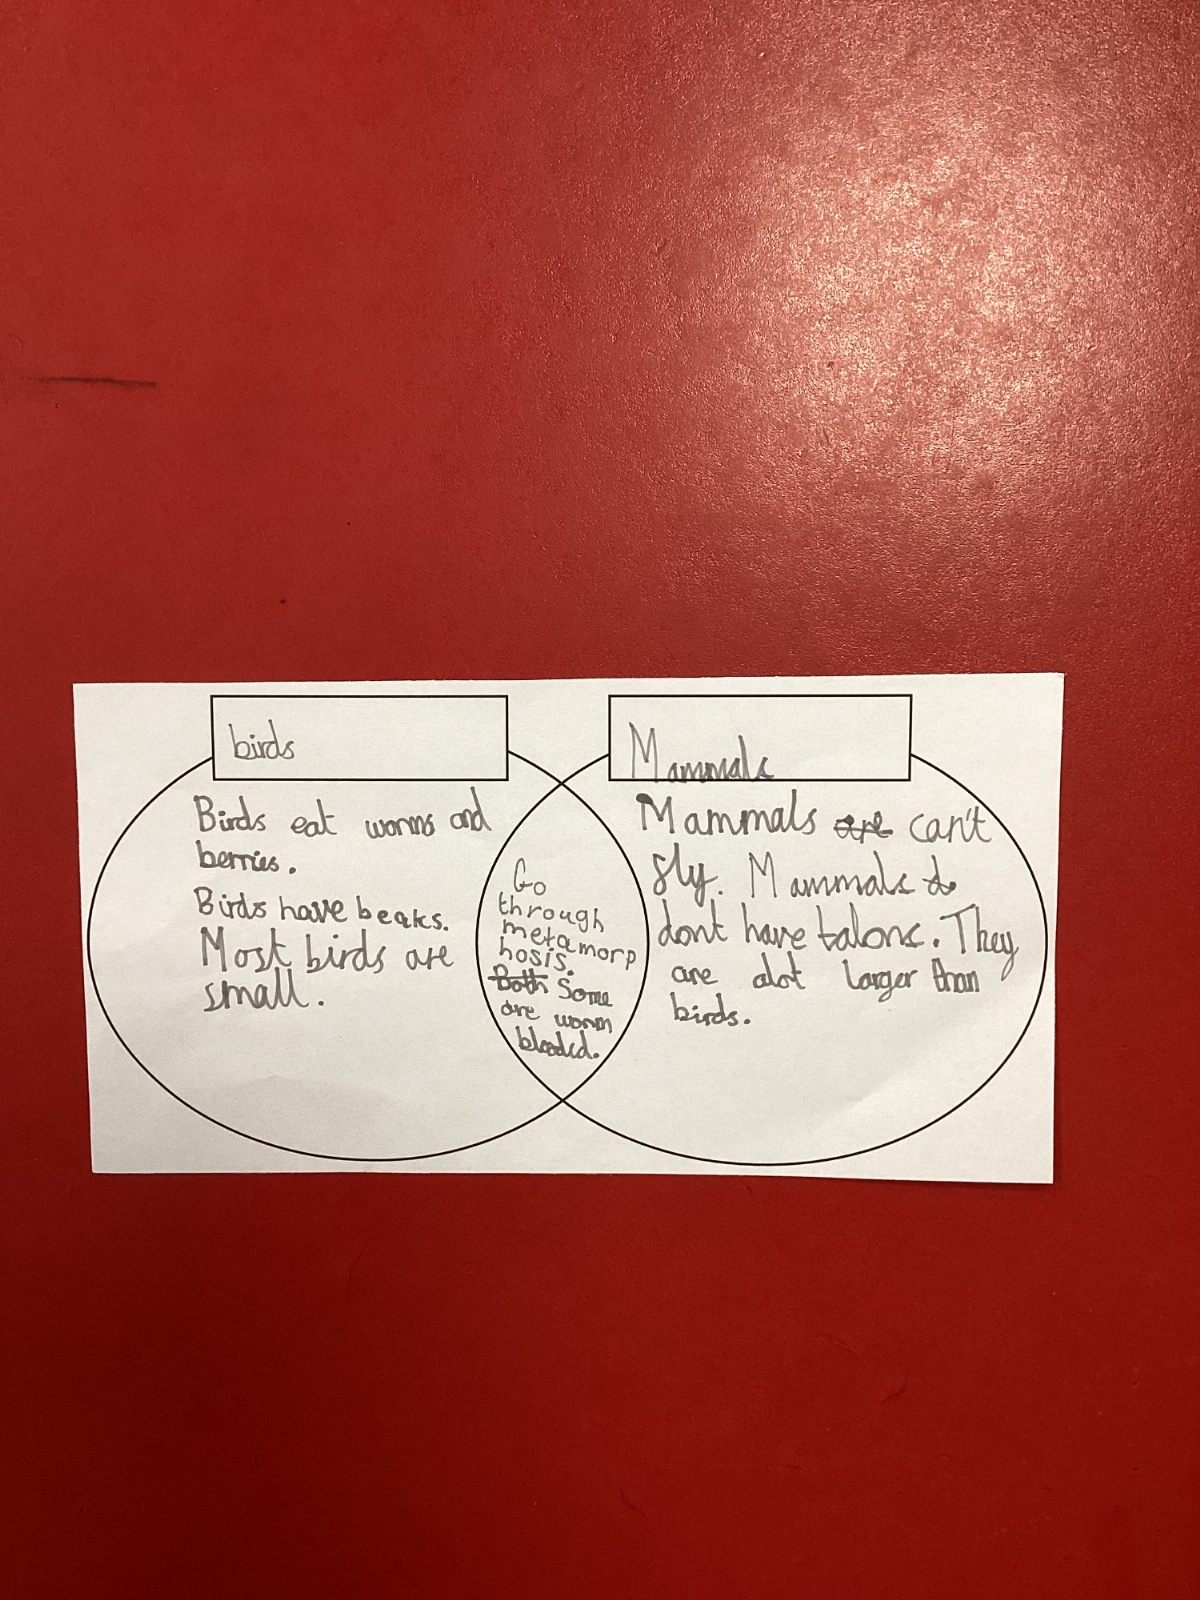 birds
Birds eat worms and
berries.
Birds have beaks.
Most birds are
small.
Go
through
metamorp
hosis.
Both Some
are worm
blooded.
Mammals
Mammals are can't
fly. Mammals d
dont have talons. They
are alot larger than
birds.